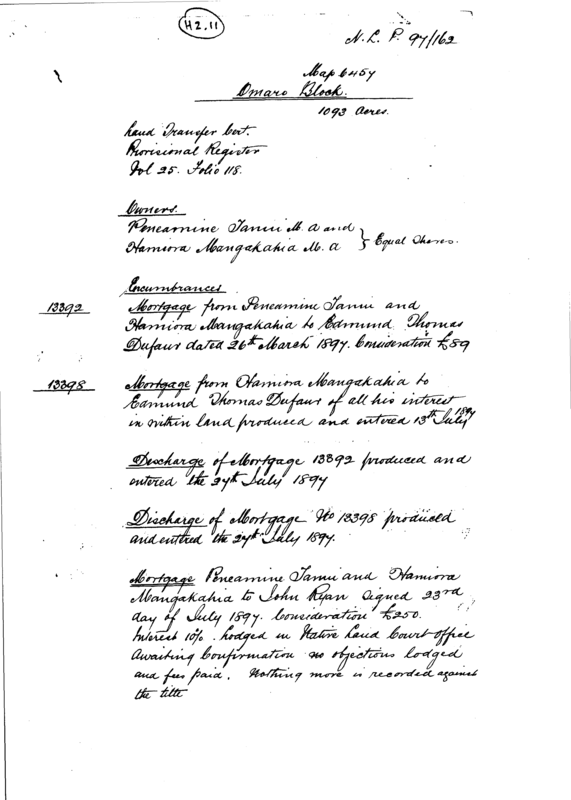 H2.11
N. L. P. 97/162
Map 6457
Omaro Block.
1093 Acres.
Land Transfer Cert.
Provisional Register
Vol 25. Folio 118.
Owners.
Peneamine Tanui M. A and
Hamiora Mangakahia M. A } Equal Shares.
Encumbrances
13392 Mortgage from Peneamine Tanui and
Hamiora Mangakahia to Edmund Thomas
Dufaur dated 26th March 1897. Consideration £89
13398 Mortgage from Hamiora Mangakahia to
Edmund Thomas Dufaur of all his interest
in within land produced and entered 13th July 1897
Discharge of Mortgage 13392 produced and
entered the 27th July 1897
Discharge of Mortgage No 13398 produced
and entered the 27th July 1897.
Mortgage Peneamine Tanui and Hamiora
Mangakahia to John Ryan signed 23rd
day of July 1897. Consideration £250.
Interest 10%. Lodged in Native Land Court Office
Awaiting Confirmation no objections lodged
and fees paid. Nothing more is recorded against
the title